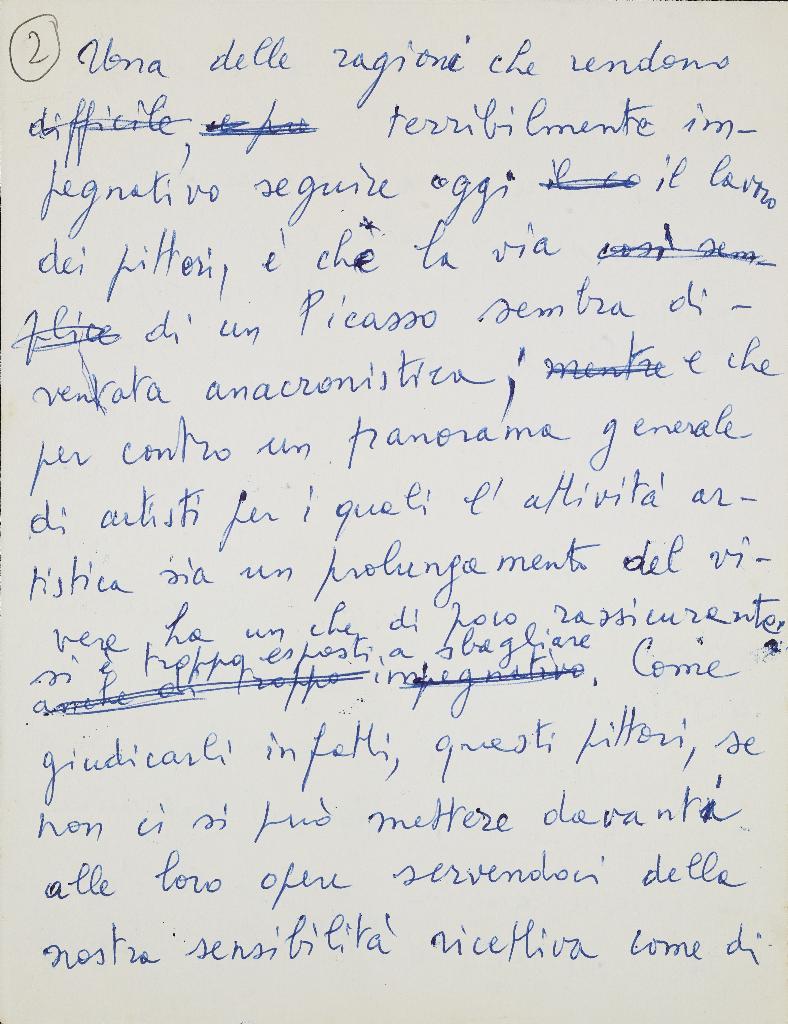 2 Una delle ragioni che rendono
difficile, e pu terribilmente im-
pegnativo seguire oggi il co il lavoro
dei pittori, è che la via così sem-
plice di un Picasso sembra di-
ventata anacronistica, mentre e che
per contro un panorama generale
di artisti per i quali l'attività ar-
tistica sia un prolungamento del vi-
vere ha un che di poco rassicurante.
si è troppo esposti a sbagliare
anche di troppo impegnativo. Come
giudicarli infatti, questi pittori, se
non ci si può mettere davanti
alle loro opere servendoci della
nostra sensibilità ricettiva come di